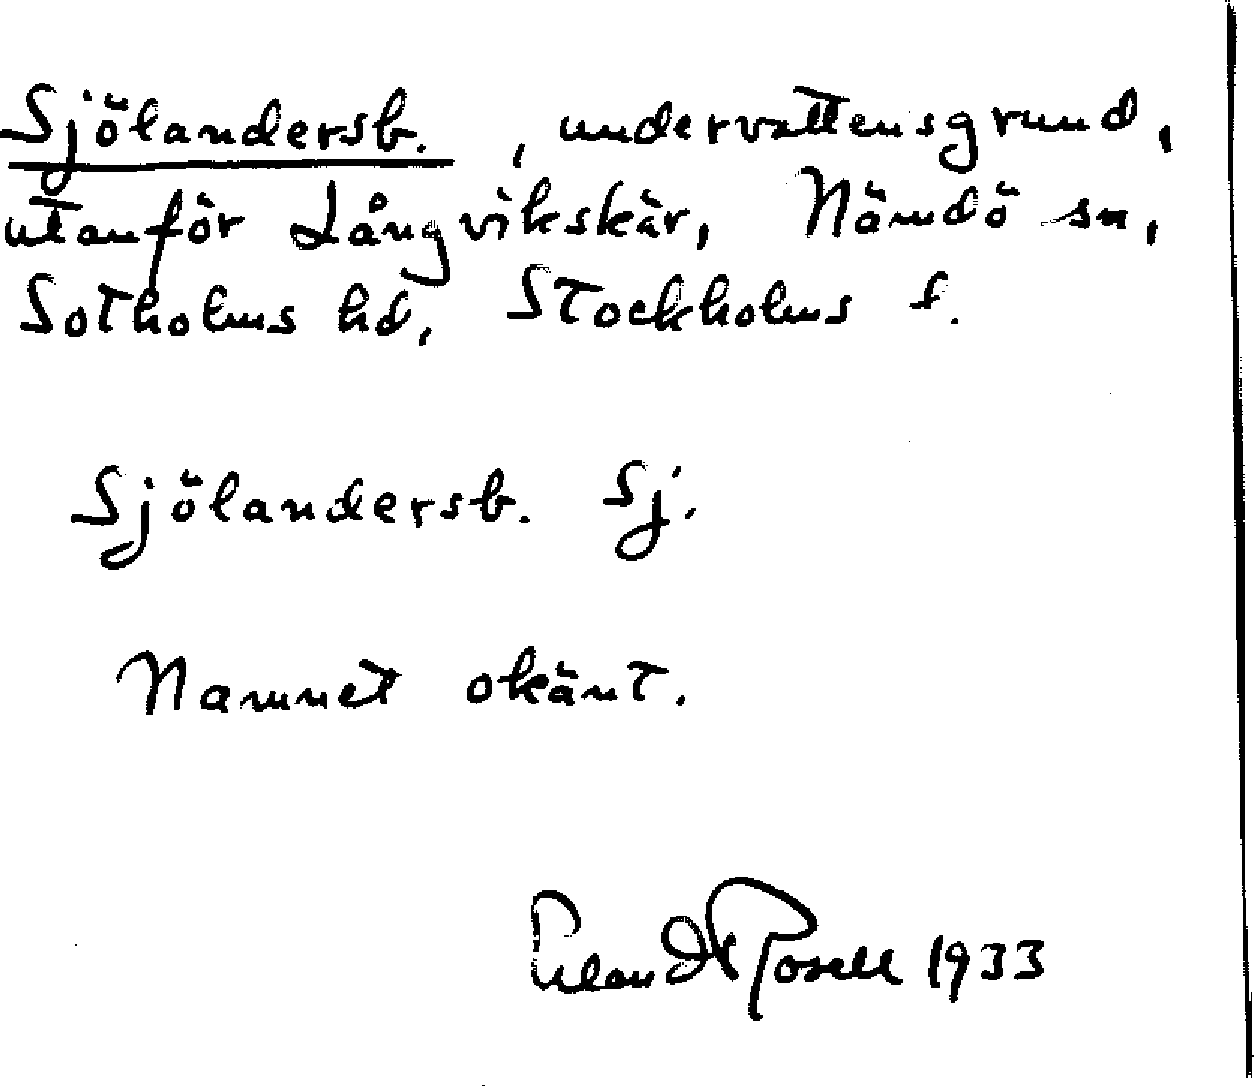 Sjölandersb. , undervattensgrund,
utanför Långvikskär, Nämdö sn,
Sotholms hd, Stockholms l.
Sjölandersb. Sj.
Namnet okänt.
Erland Rosell 1933